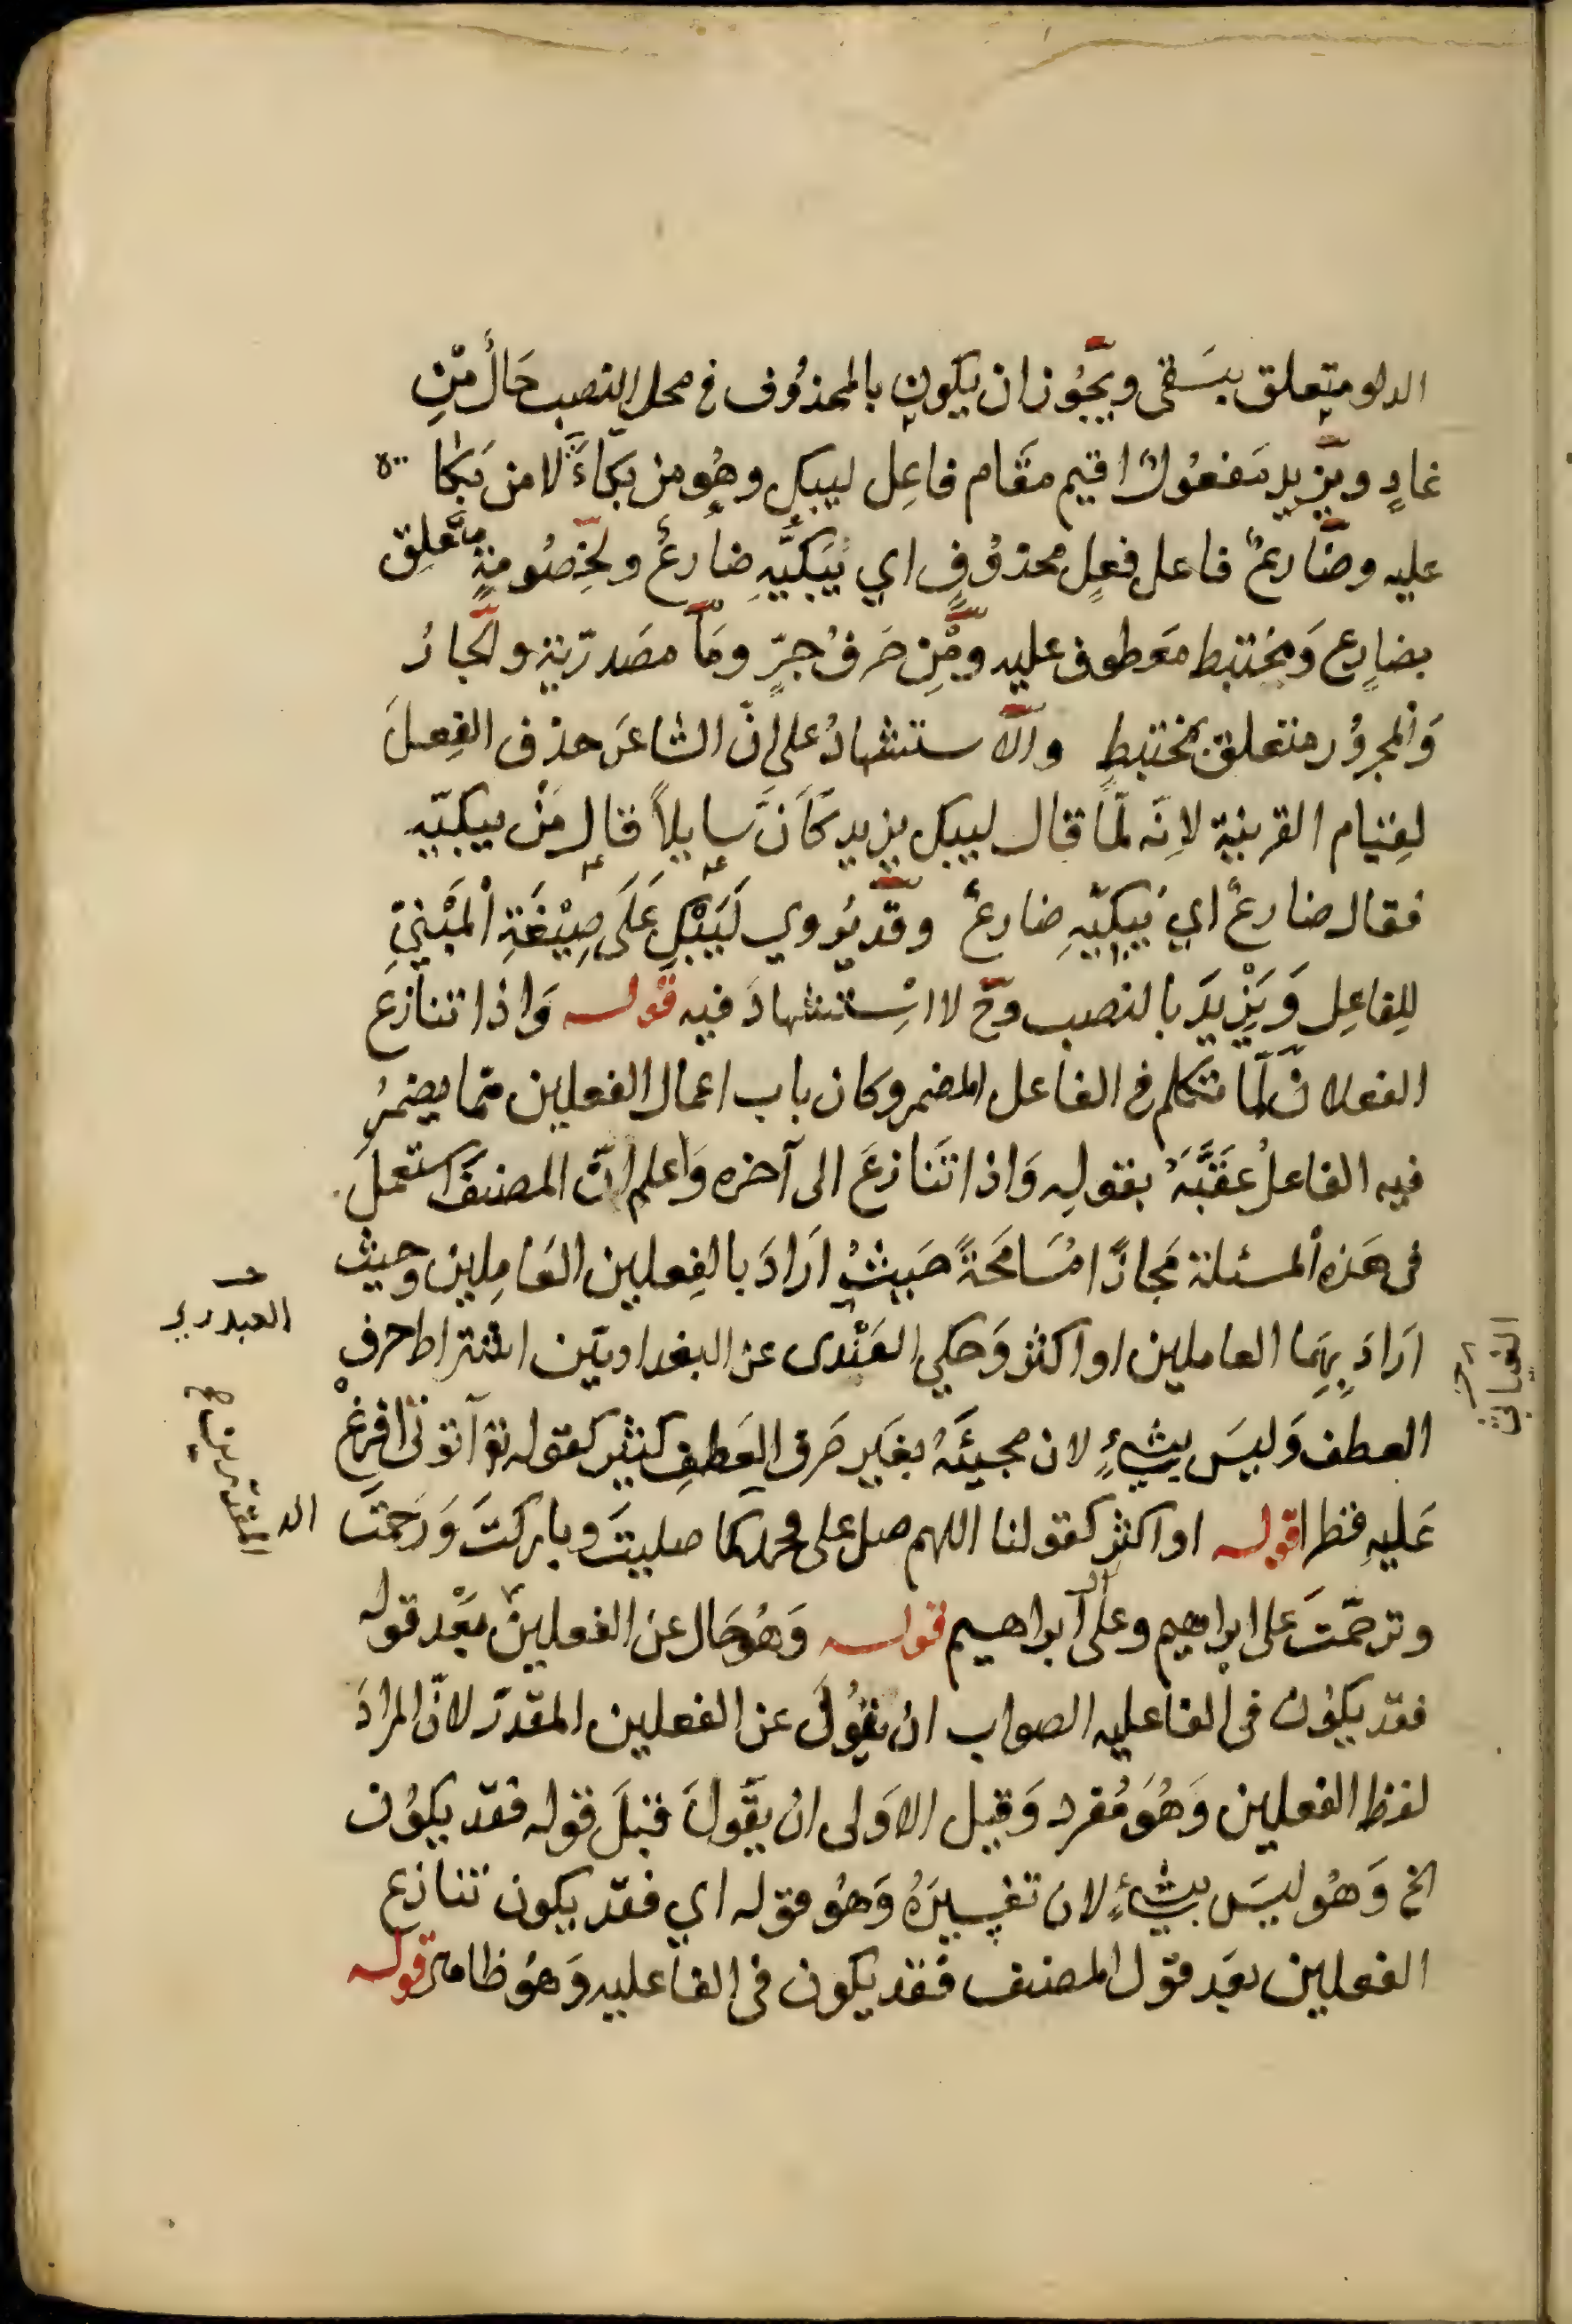 الدلو متعلق بيسقى ويجُوز ان يكون بالمحذوُف فى محل النصب حَالٌ مّنِ
غادٍ ويزيد مَفعُولٌ اقيم مقَام فاعِل ليبكِ وهُو من بكاءَهُ لا من بَكا
عليه وضَارعٌ فاعل فعِل محذوُفٍ اي يَبكيّهِ ضارعٌ ولِخصُومةٍ متعلِق
بضارِع وَمختبط مَعطوف عليه ومِّن حَرفُ جرٍّ ومَا مصَدرّية والجارُ
وَالمجروُر متعلق بمختبطٍ والاستشهادُ على انّ الشاعرَ حذف الفِعلَ
لِقيام القرينة لانِه لمّا قال ليبك يزيد كَاَنَّ سايلاً قال مَنْ يبكيّه
فقال ضارعٌ اي يَبكيّهِ ضارعٌ وقد يُروي لَيَبْكِ عَلَى صِيْغَةِ المَبْنيِّ
لِلفاعِل وَيَزِيْدَ بالنصب وحَ لا اسْتشهادَ فيه قوله وَاذا تنازع
الفعلان لمّا تكلم فى الفاعل المضمر وكان باب اعمال الفعلين ممّا يضمرُ
فيه الفاعلُ عقَبَّهُ بقولِه وَاذا تَنازعَ الى آخره وَاعلم انّ المصنفَ استعمل
فى هَذه المسئلة مَجازًا مُسَامحَةً حَيثُ ارَادَ بالفِعلين العَامِلين وحيث
ارَادَ بِهِمَا العاملين او اكثر وَحكي العَبْدى عن البغداديّين اشتراط حرف
العطف وَليسَ بشيءٍ لان مجيئَهُ بغَير حَرف العَطفِ كثير كقوله تع آتونى افرغْ
عَليهِ قطرا قوله او اكثر كقولنا اللهم صل على محمد كما صليتَ وباركتَ وَرَحمتَ
وترحّمتَ على ابراهيم وعلى آل ابراهيم قوله وَهُو حَال عن الفعلين بَعْد قوله
فقد يكوُن فى الفاعليه الصواب ان يقُولَ عن الفعلين المقدّر لانّ المرادَ
لفظ الفعلين وَهُوَ مُفرد وَقيل الاوَلى ان يقولَ قبلَ قوله فقد يكوُن
الخ وَهُو ليسَ بشيءٍ لان تفسيرَهُ وَهُو قوله اي فقد يكون تنازع
الفعلين بعَد قول المصنف فقد يكون فى الفاعليه وَهُو ظاهر قوله
العبدري